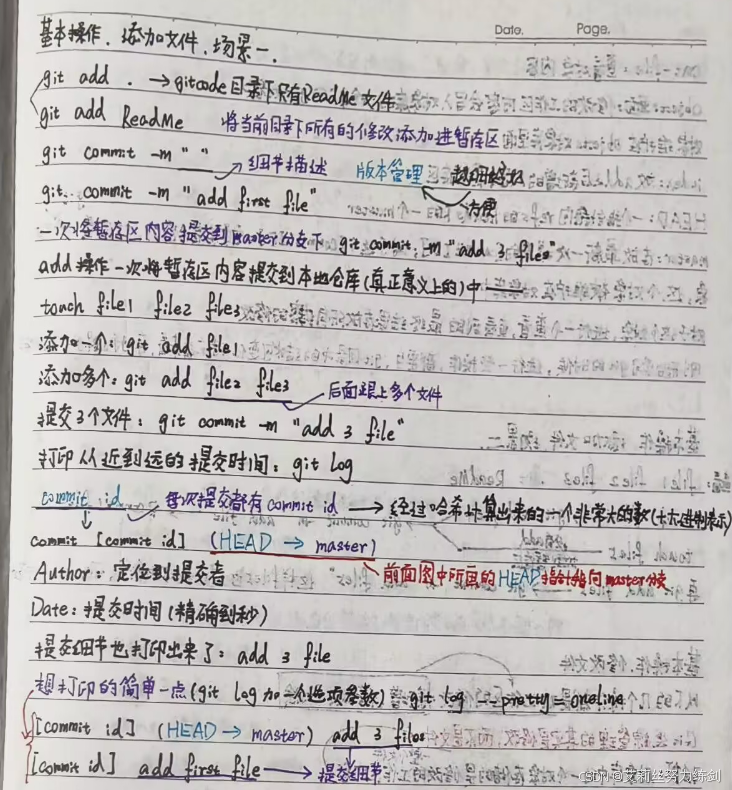 Date. Page.
基本操作、添加文件、场景一、
git add . →gitcode目录下只有ReadMe文件
git add ReadMe 将当前目录下所有的修改添加进暂存区
git commit -m " " →细节描述 版本管理 越细越好
git commit -m "add first file" 方便
一次将暂存区内容提交到master分支下 git commit -m "add 3 files"
add操作一次将暂存区内容提交到本地仓库(真正意义上的)中
touch file1 file2 file3
添加一个: git add file1
添加多个: git add file2 file3 后面跟上多个文件
提交3个文件: git commit -m "add 3 file"
打印从近到远的提交时间: git log
commit id 每次提交都有commit id → 经过哈希计算出来的一个非常大的数(十六进制表示)
commit [commit id] (HEAD → master)
Author: 定位到提交者 前面图中所画的HEAD指针指向master分支
Date: 提交时间(精确到秒)
提交细节也打印出来了: add 3 file
想打印的简单一点(git log加一个选项参数) git log --pretty=oneline
[commit id] (HEAD → master) add 3 files
[commit id] add first file → 提交细节
CSDN @艾莉丝努力练剑